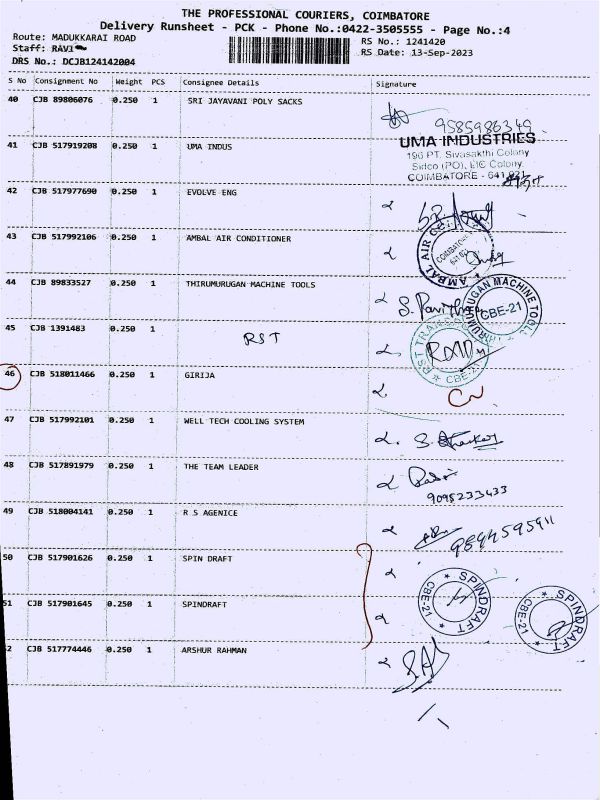 THE PROFESSIONAL COURIERS, COIMBATORE
Delivery Runsheet - PCK - Phone No.:0422-3505555 - Page No.:4
Route: MADUKKARAI ROAD
RS No.: 1241420
Staff: RAVI
RS Date: 13-Sep-2023
DRS No.: DCJB124142004
S No Consignment No Weight PCS Consignee Details Signature
40 CJB 89806076 0.250 1 SRI JAYAVANI POLY SACKS
9585986349
41 CJB 517919208 0.250 1 UMA INDUS
UMA INDUSTRIES
196 PT. Sivasakthi Colony
Sidco (PO), EIC Colony,
COIMBATORE - 641 021
42 CJB 517977690 0.250 1 EVOLVE ENG
43 CJB 517992106 0.250 1 AMBAL AIR CONDITIONER
AMBAL AIR CO
COIMBATORE
44 CJB 89833527 0.250 1 THIRUMURUGAN MACHINE TOOLS
S. Pavithra
THIRUMURUGAN MACHINE TOOLS
CBE-21
45 CJB 1391483 0.250 1 RST
RST TRANS
CBE-21
46 CJB 518011466 0.250 1 GIRIJA
47 CJB 517992101 0.250 1 WELL TECH COOLING SYSTEM
48 CJB 517891979 0.250 1 THE TEAM LEADER
9095233433
49 CJB 518004141 0.250 1 R S AGENICE
50 CJB 517901626 0.250 1 SPIN DRAFT
SPINDRAFT
CBE-21
51 CJB 517901645 0.250 1 SPINDRAFT
SPINDRAFT
CBE-21
2 CJB 517774446 0.250 1 ARSHUR RAHMAN